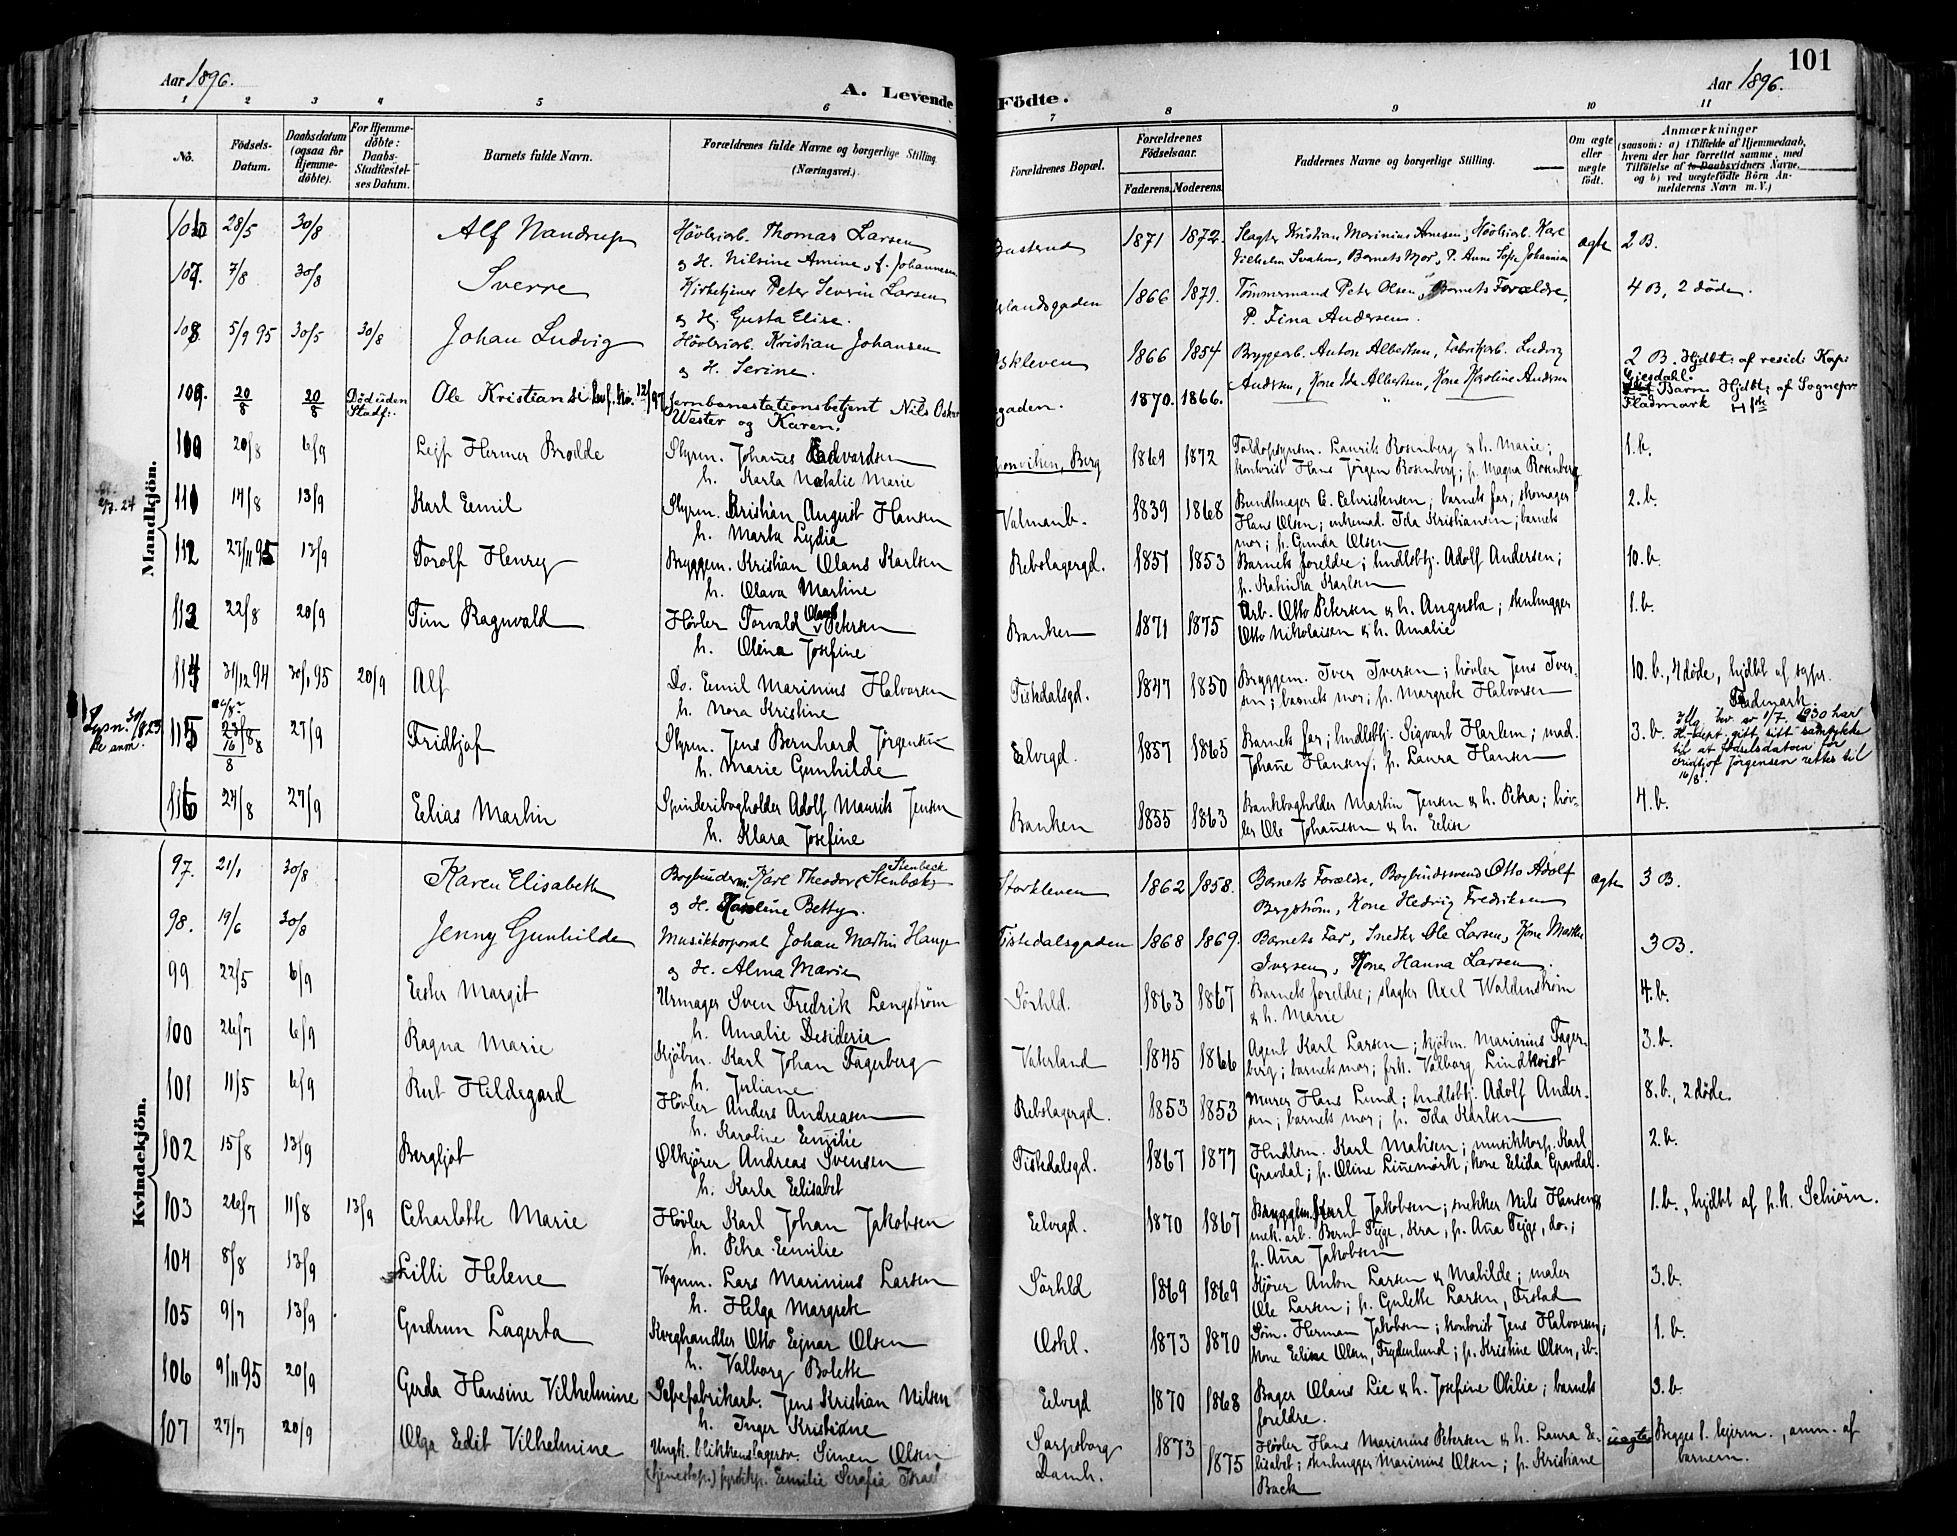 Aar 1896.
A. Levende Födte.
Aar 1896.
101
1 2 3 4 5 6 7 8 9 10 11
No.
Födsels-Datum.
Daabsdatum (ogsaa for Hjemme-döbte).
For Hjemme-döbte: Daabs-Stadfæstel-ses Datum.
Barnets fulde Navn.
Forældrenes fulde Navne og borgerlige Stilling (Næringsvei).
Forældrenes Bopæl.
Forældrenes Födselsaar.
Faderens. Moderens.
Faddernes Navne og borgerlige Stilling.
Om ægte eller uægte födt.
Anmærkninger
(saasom: a) i Tilfælde af Hjemmedaab, hvem der har forrettet samme, med Tilföielse af Daabsvidners Navne, og b) ved uægtefödte Börn An-melderens Navn m. V.)
Mandkjön.
28/5 30/8 Alf Nandrup Hövleriarb. Thomas Larsen 1871 1872. Slagter Kristian Marinius Arnesen, Hövleriarb. Karl ægte 2 B.
& H. Nilsine Amine, f. Johannesen Barnets Mor, P. Anne Sofie Johannesen
107. 7/8 30/8 Sverre Kirketjener Peter Severin Larsen 1866 1871. Tömmermand Peter Olsen, Barnets Forældre, 4 B, 2 döde.
& H. Gusta Elise. P. Fina Andersen.
108. 5/9 95 30/5 30/8 Johan Ludvig Hövleriarb. Kristian Johansen 1866 1854 Bryggearb. Anton Albertsen, Fabrikarb. Ludvig 2 B. Hjdbt. af resid. Kap.
& H. Serine. Andersen, Kone Ida Albertsen, Kone Karoline Andersen Giesdahl.
109. 20/8 20/8 Död uden Stadf. Ole Kristian Jernbanestationsbetjent Nils Oskar gaden. 1870. 1866. Barn Hjdbt. af Sognepr.
Wester og Karen. Fladmark
20/8 6/9 Leif Hermer Brodde Styrm. Johannes Edvardsen Berg 1869 1872 Laurits Rosenberg & h. Marie; 1. b.
h. Karla Natalie Marie kontorist Hans Jörgen Rosenberg; p. Magna Rosenberg
111 14/8 13/9 Karl Emil Styrm. Kristian August Hansen 1839 1868 Bundtmager C. Christensen; barnets far; skomager 2. b.
h. Marta Lydia Hans Olsen; enkemad. Ida Kristiansen; barnets
mor; p. Gunda Olsen
112 27/11 95 13/9 Torolf Henry Bryggem. Kristian Olaus Karlsen Rebslagergd. 1851 1853 Barnets foreldre; hndlsbtj. Adolf Andersen; 10. b.
h. Olava Martine p. Katinka Karlsen
113 22/8 20/9 Finn Ragnvald Hövler Torvald Olaus Petersen Banken 1871 1875 Arb. Otto Petersen & h. Augusta; stenhugger 1. b.
h. Olena Josefine Otto Nikolaisen & h. Amalie
114 31/12 94 30/1 95 20/9 Alf Do. Emil Marinius Halvorsen Tistedalsgd. 1847 1850 Bryggem. Iver Iversen; hövler Jens Iver- 10. b., 4 döde, hjdbt af sgpr.
h. Nora Kristine sen; barnets mor; p. Margrete Halvorsen Fladmark.
115 27/9 Fridtjof Styrm. Jens Bernhard Jörgensen Eilvegd. 1857 1865 Barnets far; hndlsbtj. Sigvart Harlem; mad. 3. b.
h. Marie Gunhilde Johanne Hansen; p. Laura Hansen
1/7. 1930 har
gitt sitt samtykke
til at födselsdatoen for
Fridtjof Jörgensen rettes til
16/8.
116 24/8 27/9 Elias Martin Spinderibogholder Adolf Maurits Jensen Banken 1855 1863 Bankbogholder Martin Jensen & h. Petra; höv- 4. b.
h. Klara Josefine ler Ole Johansen & h. Elise
Kvindekjön.
97. 21/1 30/8 Karen Elisabeth Bogbinderm. Karl Theodor (Stenbæk) Stenbeck Storkleven 1862 1858. Barnets Forældre, Bogbindersvend Otto Adolf ægte 3 B.
& H. Karoline Betty. Bergström, Kone Hedvig Fredriksen
98. 19/6 30/8 Jenny Gunhilde Musikkorporal Johan Martin Hauge Tistedalsgaden 1868 1869. Barnets Far, Snedker Ole Larsen, Kone Marthe 3 B.
& H. Alma Marie Iversen, Kone Hanna Larsen.
99 22/5 6/9 Ester Margit Urmager Sven Fredrik Lengström Sörhld. 1863 1867 Barnets foreldre; slagter Axel Waldenström 4. b.
h. Amalie Desideria & h. Marie
100 26/7 6/9 Ragna Marie Kjöbm. Karl Johan Fagerberg Vaterland 1845 1866 Agent Karl Larsen; kjöbm. Marinius Fager- 3. b.
h. Juliane berg; barnets mor; frk. Valborg Lindkvist
101 11/5 6/9 Rut Hildegard Hövler Anders Andreasen Rebslagergd. 1853 1853 Murer Hans Lund; hndlsbtj. Adolf Ander- 8. b., 2 döde.
h. Karoline Emilie sen; barnets mor; p. Ida Karlsen
102 15/8 13/9 Bergljot Ölkjörer Andreas Svensen Tistedalsgd. 1867 1877 Hndlsm. Karl Matisen; musikkorp. Karl 2. b.
h. Karla Elisabet Gravdal; p. Oline Linnemörk; kone Elida Gravdal.
103 26/7 11/8 13/9 Charlotte Marie Hövler Karl Johan Jakobsen Eilvegd. 1870 1867 Bryggem. Karl Jakobsen; snekker Nils Hansen; 1. b., hjdbt af p.k. Schiörn.
h. Petra Emilie mek. arb. Bernt Tygge, Kra, p. Anna Tygge, do.;
p. Anna Jakobsen
104 8/8 13/9 Lilli Helene Vognm. Lars Marinius Larsen Sörhld 1869 1869 Kjörer Anton Larsen & Matilde; maler 3. b.
h. Helga Margrete Ole Larsen; p. Gulette Larsen,
105 9/7 13/9 Gudrun Lagerta Korghandler Otto Ejnar Olsen Oskl. 1873 1870 Söm. Herman Jakobsen; kontorist Jens Halvorsen; 1. b.
h. Valborg Bolette kone Elise Olsen, Frydenlund; p. Kristine Olsen, ib.
106 9/11 95 20/9 Gerda Hansine Vilhelmine Sepefabrikarb. Jens Kristian Nilsen Eilvegd 1870 1868 Bager Olaus Lie & h. Josefine Otilie; barnets 3. b.
h. Inger Kristiane foreldre.
107 27/7 20/9 Olga Edit Vilhelmine Ungk. blikkenslagersv. Simen Olsen Sarpsborg 1873 Hövler Hans Marinius Petersen & h. Laura E- uægte Begges 1. lejerm., anm. af
Emilie Serafie Damh. 1875 lisabet; stenhugger Marinius Olsen; p. Kristiane barnem.
Back